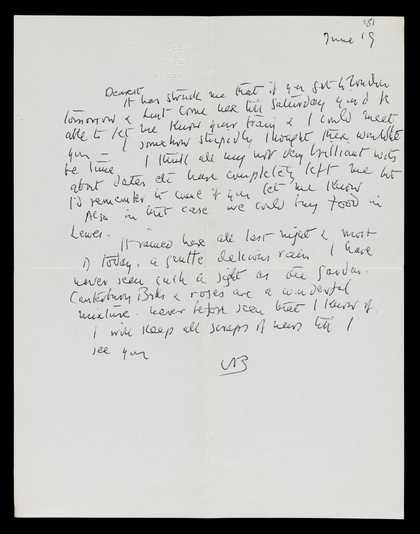 '51
June 19
Dearest
It has struck me that if you get to London
tomorrow & don't come here till Saturday you'd be
able to let me know your train & I could meet
you — I somehow stupidly thought there wouldn't
be time. I think all my not very brilliant wits
about dates etc have completely left me but
I'd remember to come if you let me know
Also in that case we could buy food in
Lewes.
It rained here all last night & most
of today, a gentle delicious rain. I have
never seen such a sight as the garden.
Canterbury Bells & roses are a wonderful
mixture. never before seen that I know of
I will keep all scraps of news till I
see you
VB